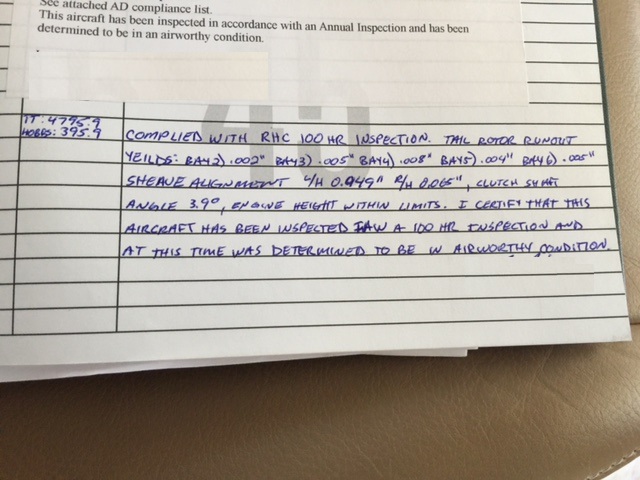 See attached AD compliance list.
This aircraft has been inspected in accordance with an Annual Inspection and has been
determined to be in an airworthy condition.
TT: 4795.9
HOBBS: 395.9
COMPLIED WITH RHC 100 HR INSPECTION. TAIL ROTOR RUNOUT
YEILDS: BAY2) .002" BAY3) .005" BAY4) .008" BAY5) .004" BAY6) .005"
SHEAVE ALIGNMENT L/H 0.049" R/H 0.065", CLUTCH SHAFT
ANGLE 3.9°, ENGINE HEIGHT WITHIN LIMITS. I CERTIFY THAT THIS
AIRCRAFT HAS BEEN INSPECTED IAW A 100 HR INSPECTION AND
AT THIS TIME WAS DETERMINED TO BE IN AIRWORTHY CONDITION.